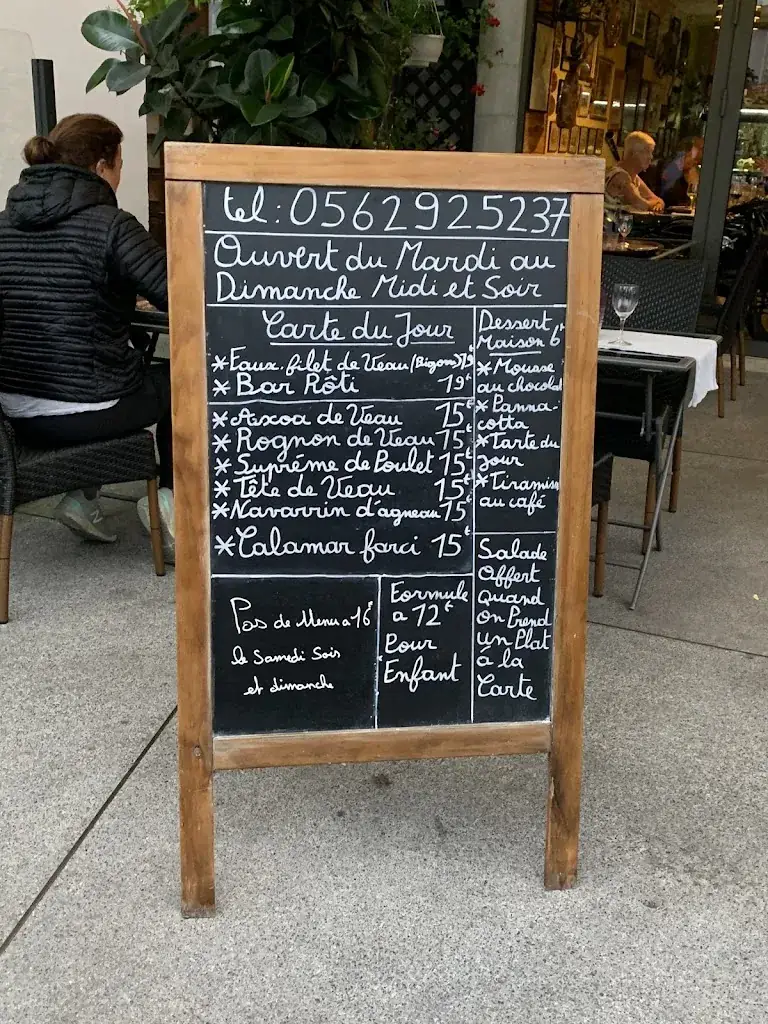 tel: 0562925237
Ouvert du Mardi au
Dimanche Midi et Soir
Carte du Jour
*Faux. filet de Veau (Bigorre) 19€
*Bar Rôti 19€
*Axoa de Veau 15€
*Rognon de Veau 15€
*Supréme de Poulet 15€
*Tête de Veau 15€
*Navarrin d'agneau 15€
*Calamar farci 15€
Dessert
Maison 6€
*Mousse
au chocolat
*Panna-
cotta
*Tarte du
Jour
*Tiramisu
au café
Pas de Menu a 16€
le Samedi Soir
et dimanche
Formule
a 12€
Pour
Enfant
Salade
Offert
Quand
on Prend
un Plat
á la
Carte